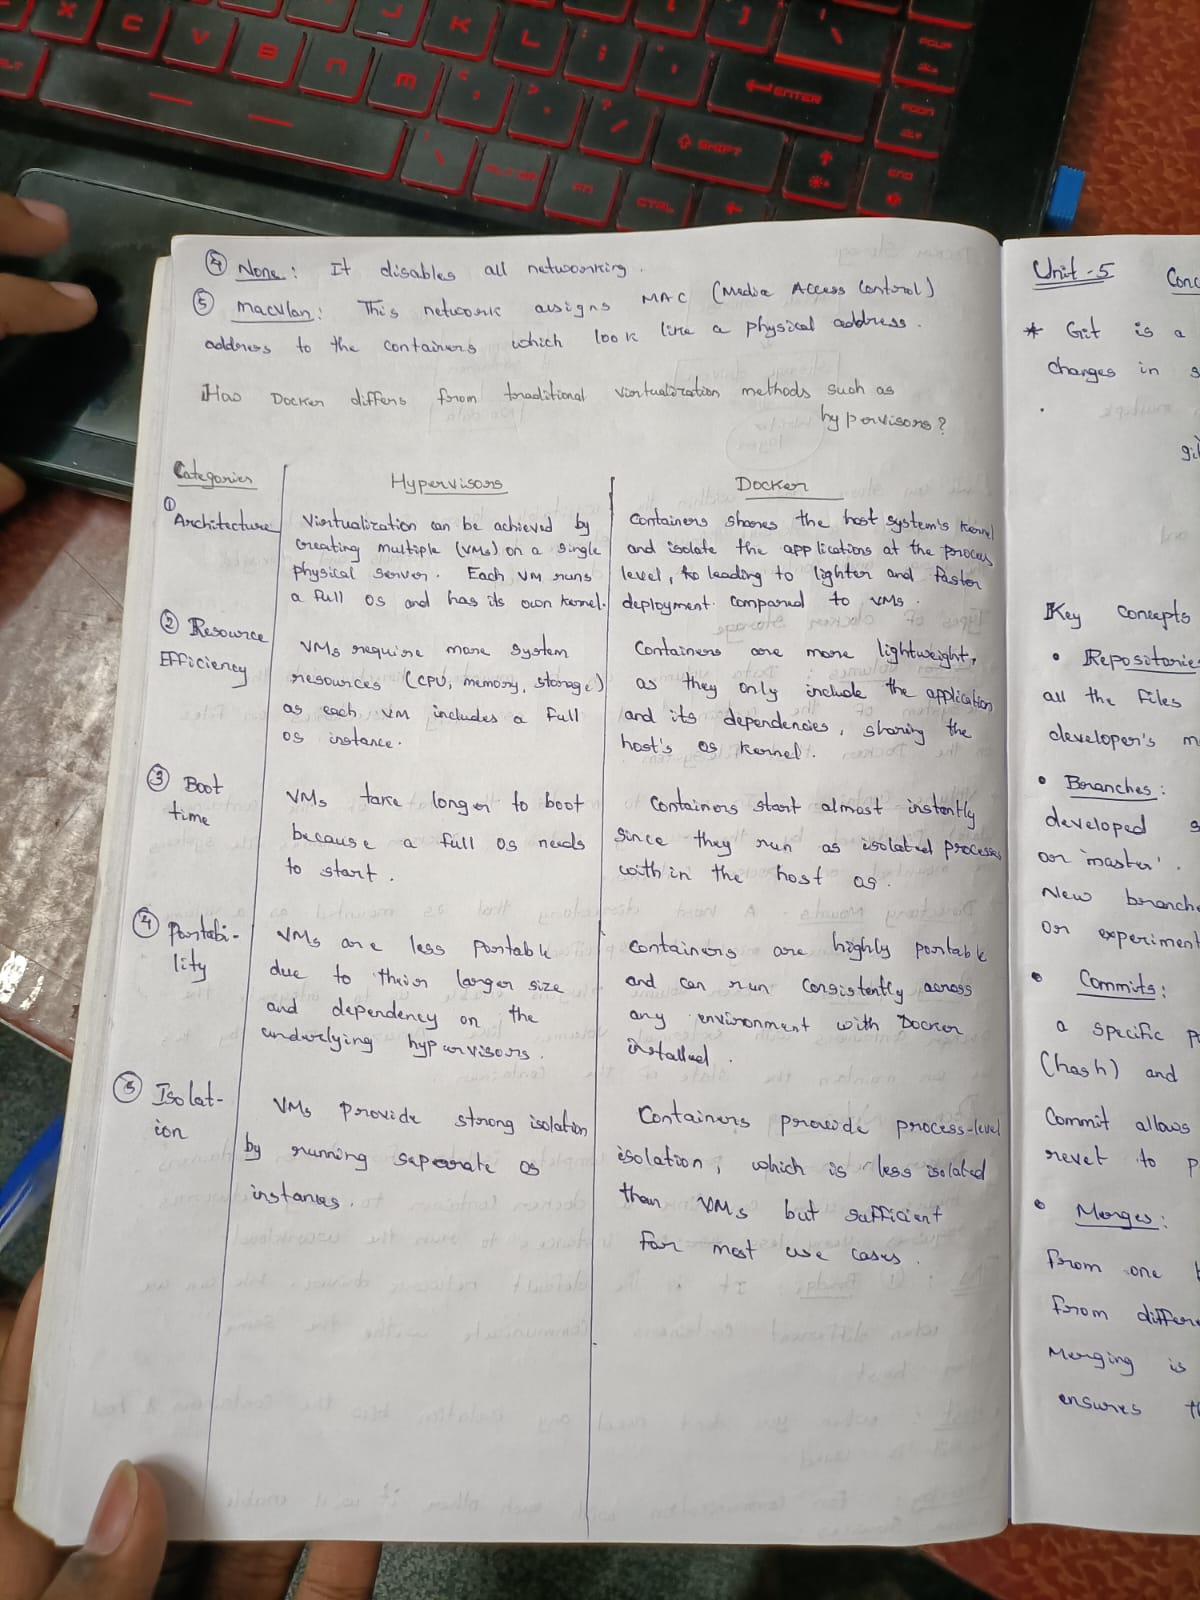 ④ None: It disables all networking.
⑤ Macvlan: This network assigns MAC (Media Access Control)
address to the containers which look like a physical address.
How Docker differs from traditional virtualization methods such as
hypervisors?
Categories
Hypervisors
Docker
① Architecture
Virtualization can be achieved by
creating multiple (VMs) on a single
physical server. Each VM runs
a full OS and has its own kernel.
Containers shares the host system's kernel
and isolate the applications at the process
level, leading to lighter and faster
deployment compared to VMs.
② Resource
Efficiency
VMs require more system
resources (CPU, memory, storage)
as each VM includes a full
OS instance.
Containers are more lightweight,
as they only include the application
and its dependencies, sharing the
host's OS kernel.
③ Boot
time
VMs take longer to boot
because a full OS needs
to start.
Containers start almost instently
since they run as isolated processes
within the host OS.
④ Portabi-
lity
VMs are less portable
due to their larger size
and dependency on the
underlying hypervisors.
Containers are highly portable
and can run consistently across
any environment with Docker
installed.
⑤ Isolat-
ion
VMs provide strong isolation
by running seperate OS
instances.
Containers provide process-level
isolation, which is less isolated
than VMs but sufficient
for most use cases.
Unit-5 Conc
* Git is a
changes in s
gi
and
Key Concepts
• Repositories
all the files
developer's m
• Branches:
developed s
or 'master'.
New branche
or experiment
• Commits:
a specific p
(hash) and
Commit allows
revet to p
• Merges:
from one b
from differe
Merging is
ensures th
X C V B N M
J K L
ALT
ENTER
SHIFT
ALT GR
FN
CTRL
PGUP
PGDN
END